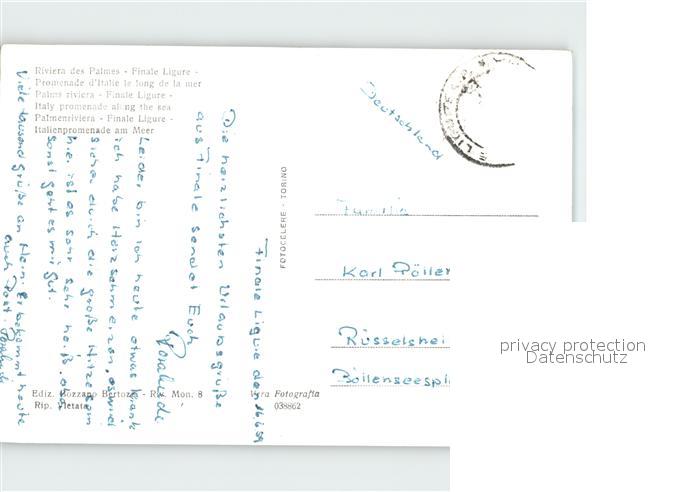 Riviera des Palmes - Finale Ligure -
Promenade d'Italie le long de la mer
Palms riviera - Finale Ligure -
Italy promenade along the sea
Palmenriviera - Finale Ligure -
Italienpromenade am Meer
Finale Ligure den 16.6.59
Die herzlichsten Urlaubsgrüße
aus Finale sendet Euch
Leider bin ich heute etwas krank
ich habe Herzschmerzen, es wird
sicher durch die große Hitze sein
hier ist es sehr sehr heiß. aber
sonst geht es mir gut.
Viele tausend grüße an Heini Er bekommt heute
auch Post.
FOTOCELERE - TORINO
Deutschland
Familie
Karl
Rüsselshei
Böllenseespl
Ediz. Bozzano Bertozzi - Riv. Mon. 8
Rip. Vietata
Vera Fotografia
038862
privacy protection
Datenschutz